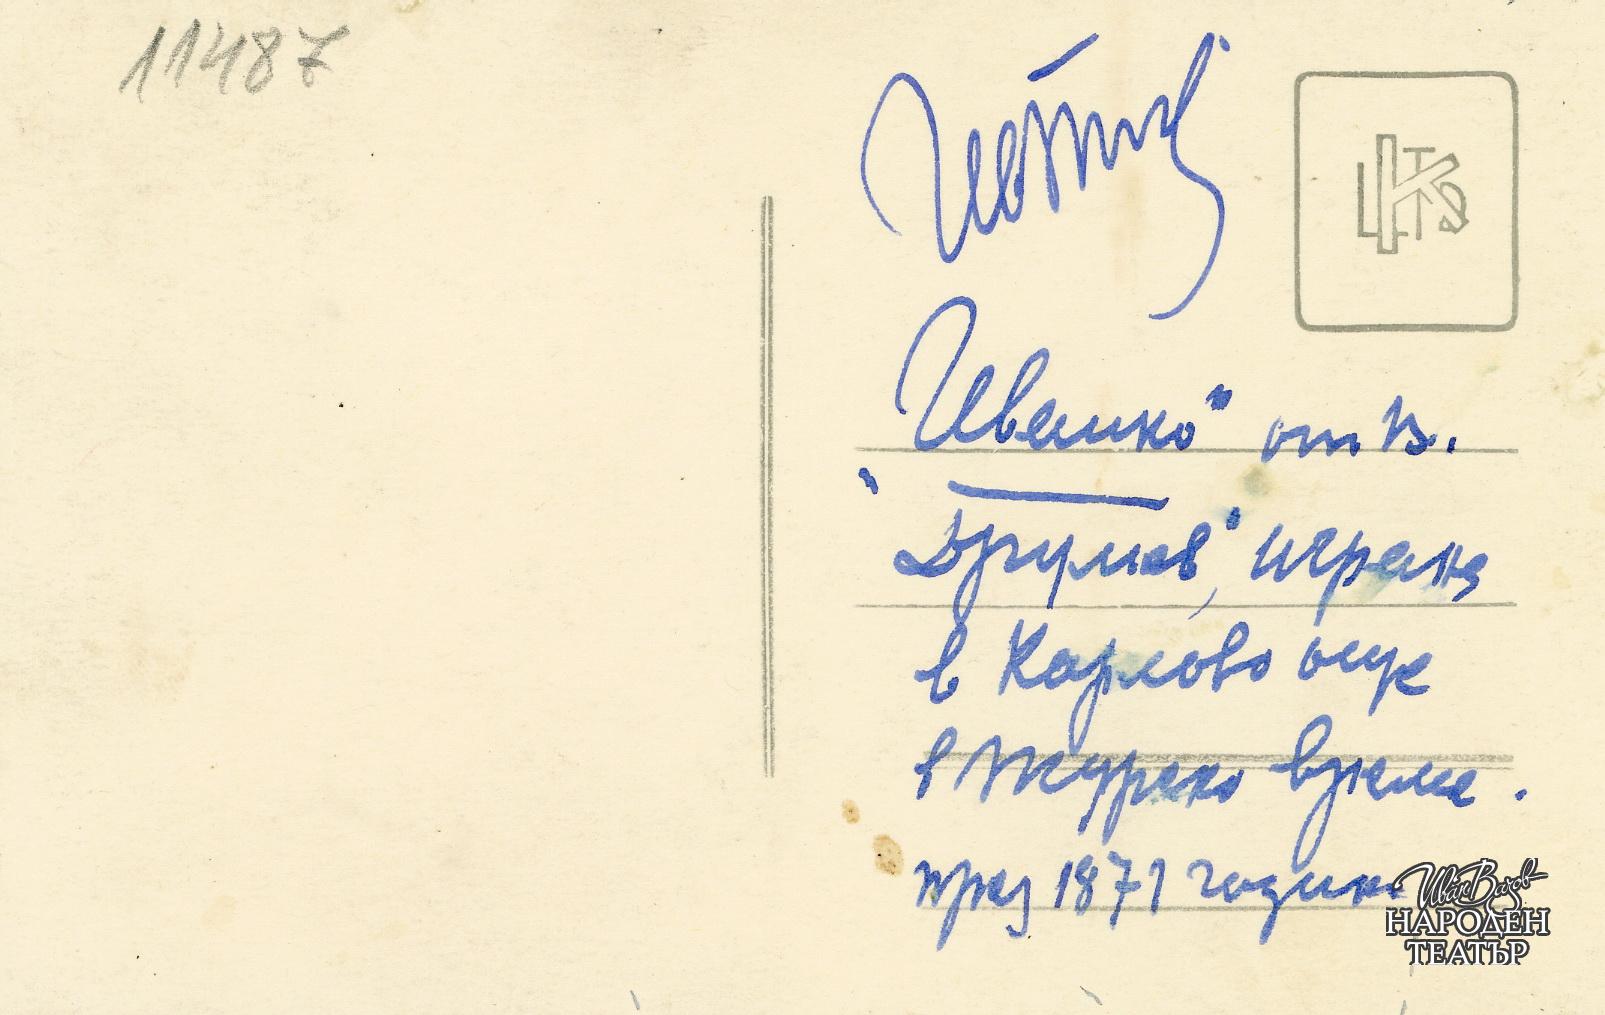 11487
„Иванко" от В.
Друмев", играна
в Карлово още
в турско време.
през 1871 година
Иван Вазов
НАРОДЕН
ТЕАТЪР